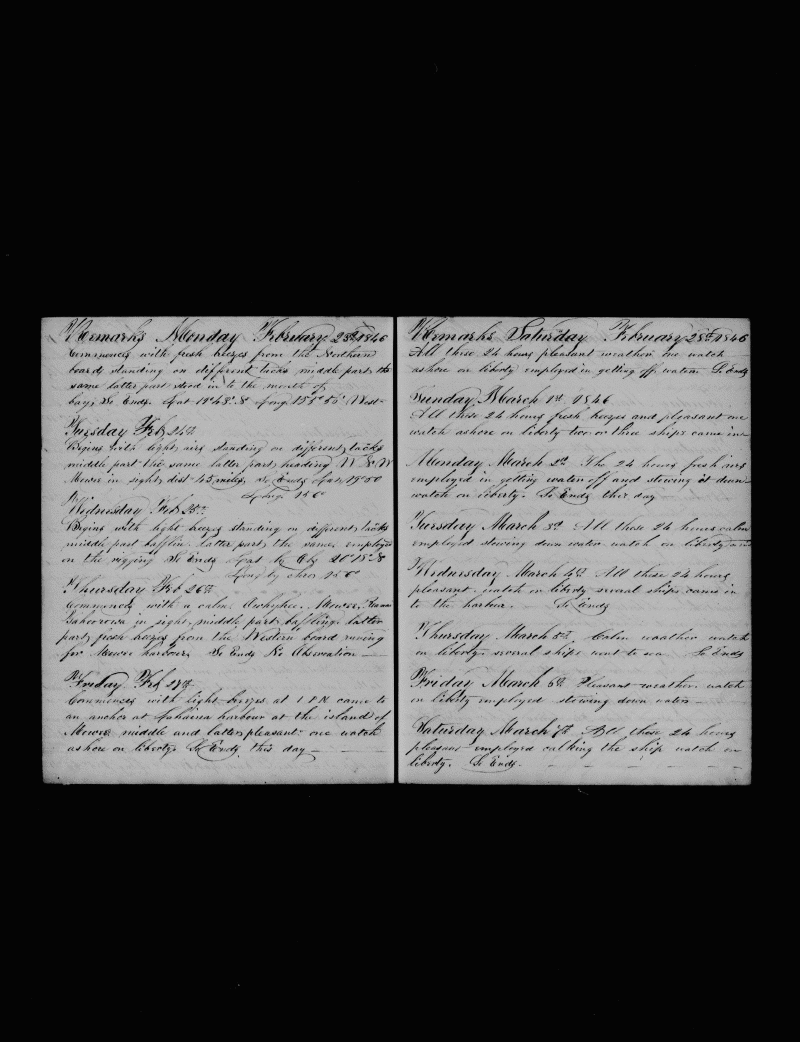 Remarks Monday February 23d 1846
Commences with fresh breezes from the Northern
board standing on different tacks middle part the
same latter part stood in to the mouth of
bay, So Ends. Lat 19° 48' N Long 155° 55' West
Tuesday Feb 24th
Begins with light airs standing on different tacks
middle part the same latter part heading W N W
Mowee in sight dist 45 miles, So Ends Lat 19° 50
Long. 156°
Wednesday Feb 25th
Begins with light breezes standing on different tacks
middle part bafflin. latter part, the same. employed
on the rigging So Ends Lat by Obs 20° 18' N
Long by chro 156°
Thursday Feb 26th
Commences with a calm. Owhyhee. Mowee,
in sight. middle part baffling. latter
part, fresh breezes from the Western board
for Mowee harbour, So Ends No Observation
Friday Feb 27th
Commences with light breezes at 1 P M came to
an anchor at Lahaina harbour at the island of
Mowee middle and latter pleasant one watch
ashore on liberty. So Ends this day
Remarks Saturday February 28th 1846
All these 24 hours pleasant weather one watch
ashore on liberty employed in getting off water So Ends
Sunday, March 1st 1846
All these 24 hours fresh breezes and pleasant one
watch ashore on liberty two or three ships came in
Monday March 2d The 24 hours fresh airs
employed in getting water off and stowing it down
watch on liberty. So Ends this day
Tuesday March 3d All these 24 hours calm
employed stowing down water watch on liberty
Wednesday March 4th All these 24 hours
pleasant watch on liberty several ships came in
to the harbour. So Ends
Thursday March 5th, Calm weather watch
on liberty. several ships went to sea So Ends
Friday March 6th Pleasant weather watch
on liberty employed stowing down water
Saturday March 7th All these 24 hours
pleasant employed calking the ship watch on
liberty. So Ends.